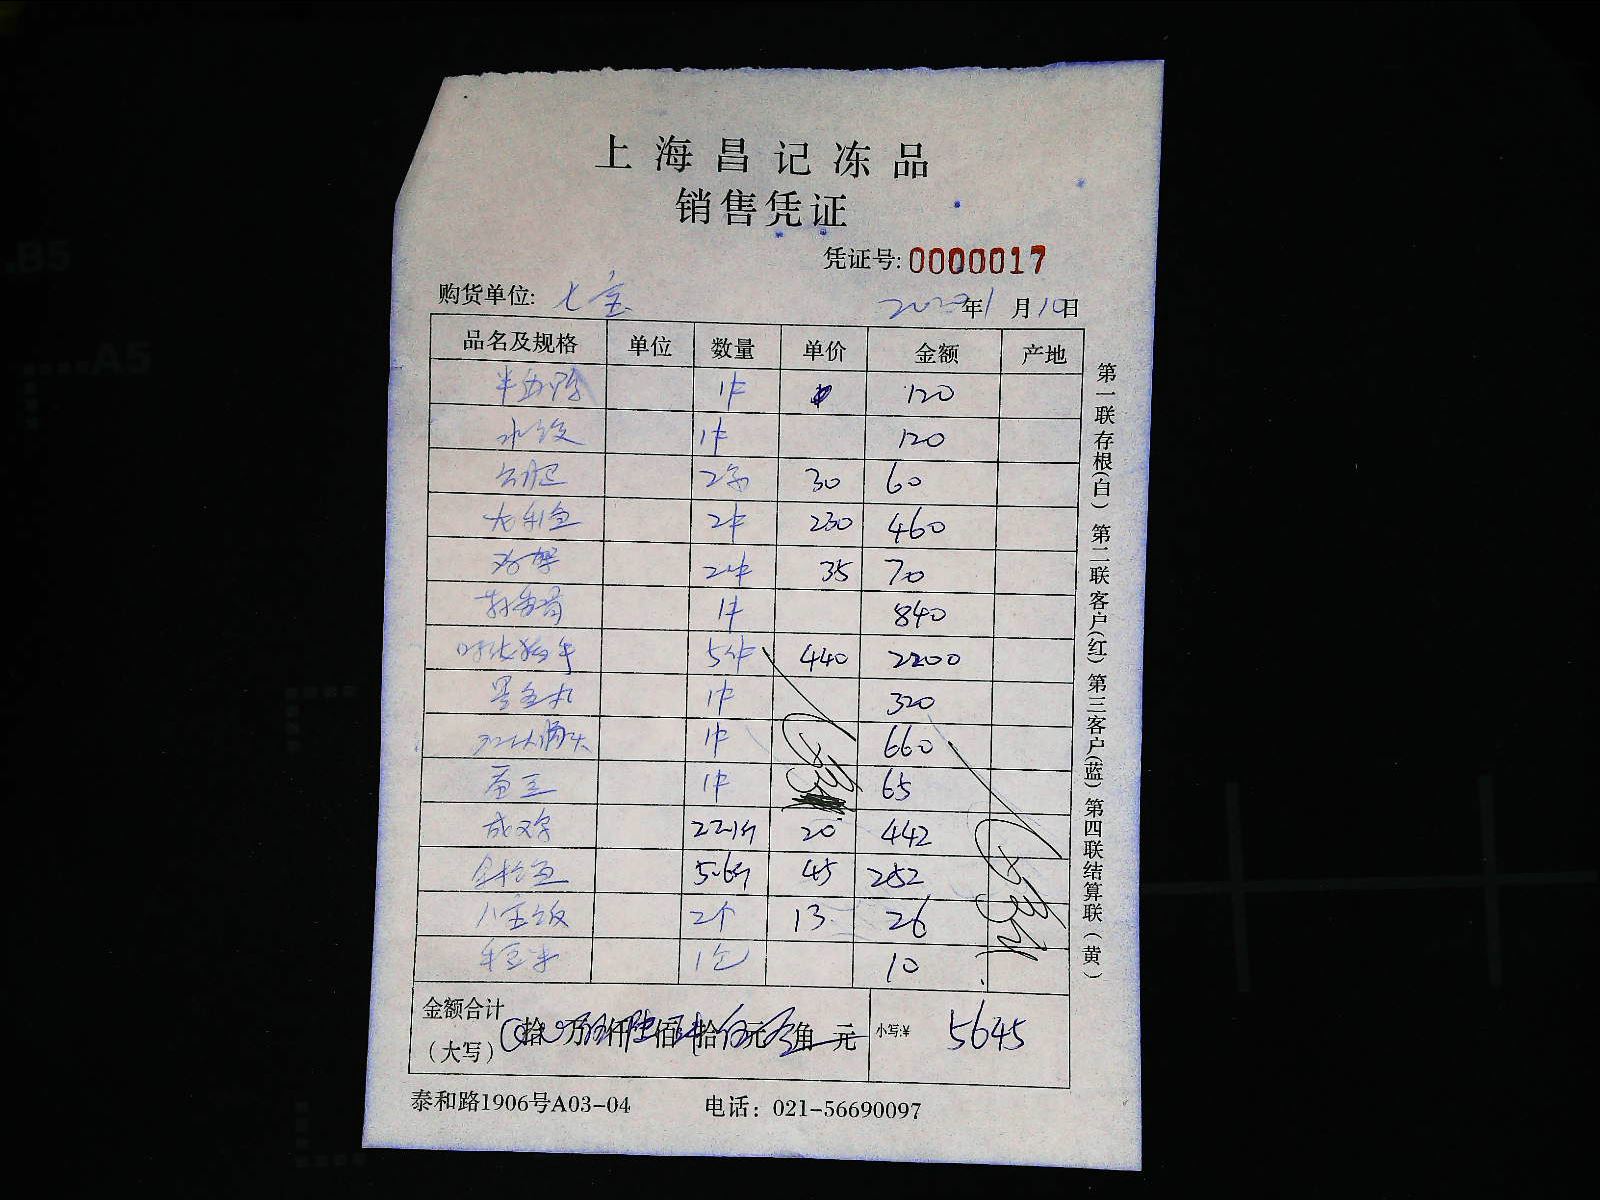 上海昌记冻品
销售凭证
凭证号: 0000017
购货单位: 七宝 年1月10日
品名及规格 单位 数量 单价 金额 产地
1件 120
水饺 1件 120
2包 30 60
龙利鱼 2件 230 460
2件 35 70
1件 840
5件 440 2200
墨鱼丸 1件 320
1件 660
1件 65
22.1斤 20 442
金枪鱼 5.6斤 45 252
八宝饭 2个 13 26
玉米 1包 10
金额合计
(大写) 拾 万 仟 佰 拾 元 角 元 小写:¥ 5645
泰和路1906号A03-04 电话: 021-56690097
第一联存根(白) 第二联客户(红) 第三客户(蓝) 第四联结算联(黄)